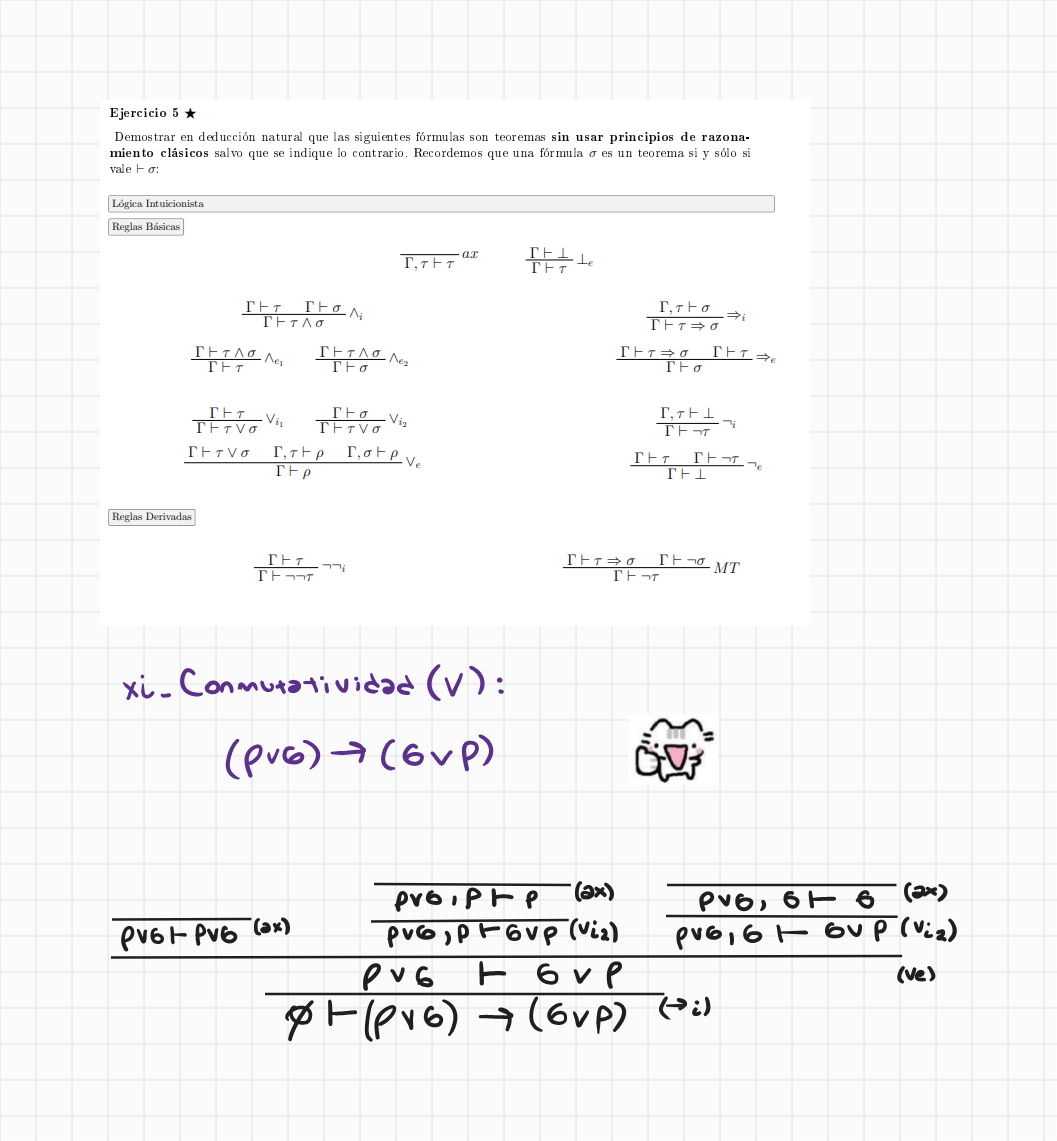 Ejercicio 5 ★
Demostrar en deducción natural que las siguientes fórmulas son teoremas sin usar principios de razona-
miento clásicos salvo que se indique lo contrario. Recordemos que una fórmula σ es un teorema si y sólo si
vale ⊢ σ:
Lógica Intuicionista
Reglas Básicas
Γ, τ ⊢ τ ax
Γ ⊢ ⊥
Γ ⊢ τ ⊥e
Γ ⊢ τ Γ ⊢ σ
Γ ⊢ τ ∧ σ ∧i
Γ, τ ⊢ σ
Γ ⊢ τ ⇒ σ ⇒i
Γ ⊢ τ ∧ σ
Γ ⊢ τ ∧e1
Γ ⊢ τ ∧ σ
Γ ⊢ σ ∧e2
Γ ⊢ τ ⇒ σ Γ ⊢ τ
Γ ⊢ σ ⇒e
Γ ⊢ τ
Γ ⊢ τ ∨ σ ∨i1
Γ ⊢ σ
Γ ⊢ τ ∨ σ ∨i2
Γ, τ ⊢ ⊥
Γ ⊢ ¬τ ¬i
Γ ⊢ τ ∨ σ Γ, τ ⊢ ρ Γ, σ ⊢ ρ
Γ ⊢ ρ ∨e
Γ ⊢ τ Γ ⊢ ¬τ
Γ ⊢ ⊥ ¬e
Reglas Derivadas
Γ ⊢ τ
Γ ⊢ ¬¬τ ¬¬i
Γ ⊢ τ ⇒ σ Γ ⊢ ¬σ
Γ ⊢ ¬τ MT
xi- Conmutatividad (∨):
(ρ∨σ) → (σ∨ρ)
ρ∨σ, ρ ⊢ ρ (ax) ρ∨σ, σ ⊢ σ (ax)
ρ∨σ ⊢ ρ∨σ (ax) ρ∨σ, ρ ⊢ σ∨ρ (∨i2) ρ∨σ, σ ⊢ σ∨ρ (∨i2)
ρ∨σ ⊢ σ∨ρ (∨e)
∅ ⊢ (ρ∨σ) → (σ∨ρ) (→i)